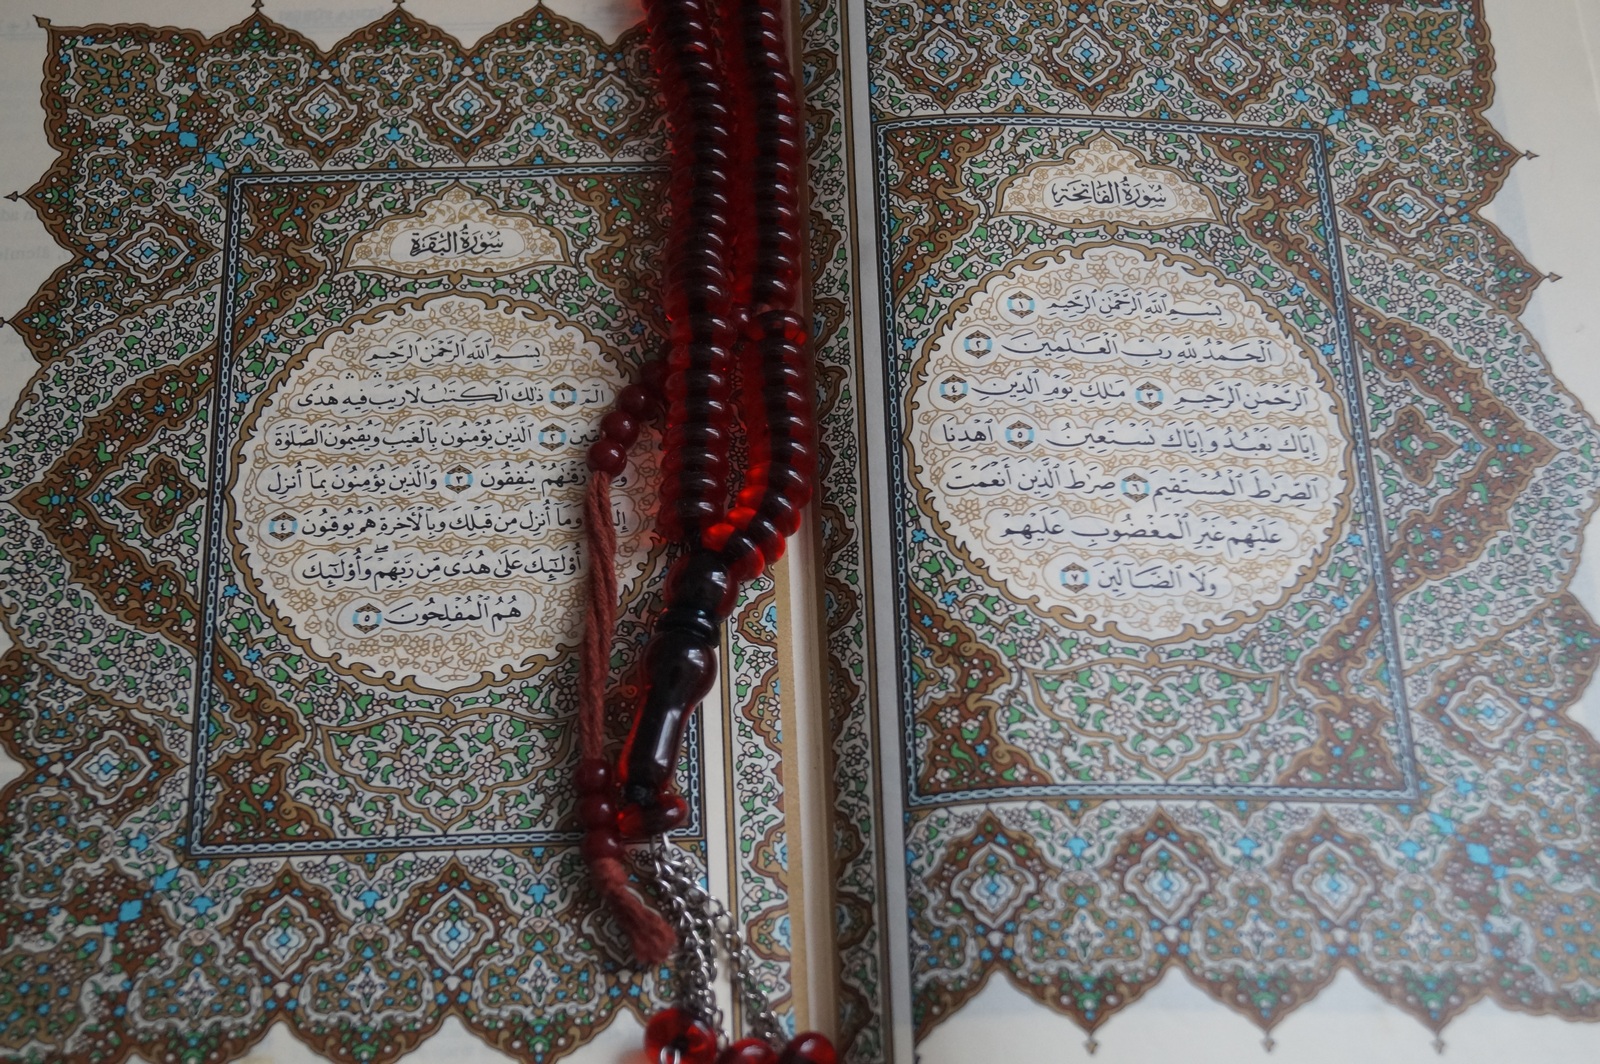 سُورَةُ الفَاتِحَة
بِسْمِ ٱللَّهِ ٱلرَّحْمَٰنِ ٱلرَّحِيمِ ١
ٱلْحَمْدُ لِلَّهِ رَبِّ ٱلْعَٰلَمِينَ ٢
ٱلرَّحْمَٰنِ ٱلرَّحِيمِ ٣ مَٰلِكِ يَوْمِ ٱلدِّينِ ٤
إِيَّاكَ نَعْبُدُ وَإِيَّاكَ نَسْتَعِينُ ٥ ٱهْدِنَا
ٱلصِّرَٰطَ ٱلْمُسْتَقِيمَ ٦ صِرَٰطَ ٱلَّذِينَ أَنْعَمْتَ
عَلَيْهِمْ غَيْرِ ٱلْمَغْضُوبِ عَلَيْهِمْ
وَلَا ٱلضَّآلِّينَ ٧
سُورَةُ البَقَرَة
بِسْمِ ٱللَّهِ ٱلرَّحْمَٰنِ ٱلرَّحِيمِ
الٓمٓ ١ ذَٰلِكَ ٱلْكِتَٰبُ لَا رَيْبَ فِيهِ هُدًى
٢ ٱلَّذِينَ يُؤْمِنُونَ بِٱلْغَيْبِ وَيُقِيمُونَ ٱلصَّلَوٰةَ
يُنفِقُونَ ٣ وَٱلَّذِينَ يُؤْمِنُونَ بِمَآ أُنزِلَ
وَمَآ أُنزِلَ مِن قَبْلِكَ وَبِٱلْأَخِرَةِ هُمْ يُوقِنُونَ ٤
أُوْلَٰٓئِكَ عَلَىٰ هُدًى مِّن رَّبِّهِمْ وَأُوْلَٰٓئِكَ
هُمُ ٱلْمُفْلِحُونَ ٥